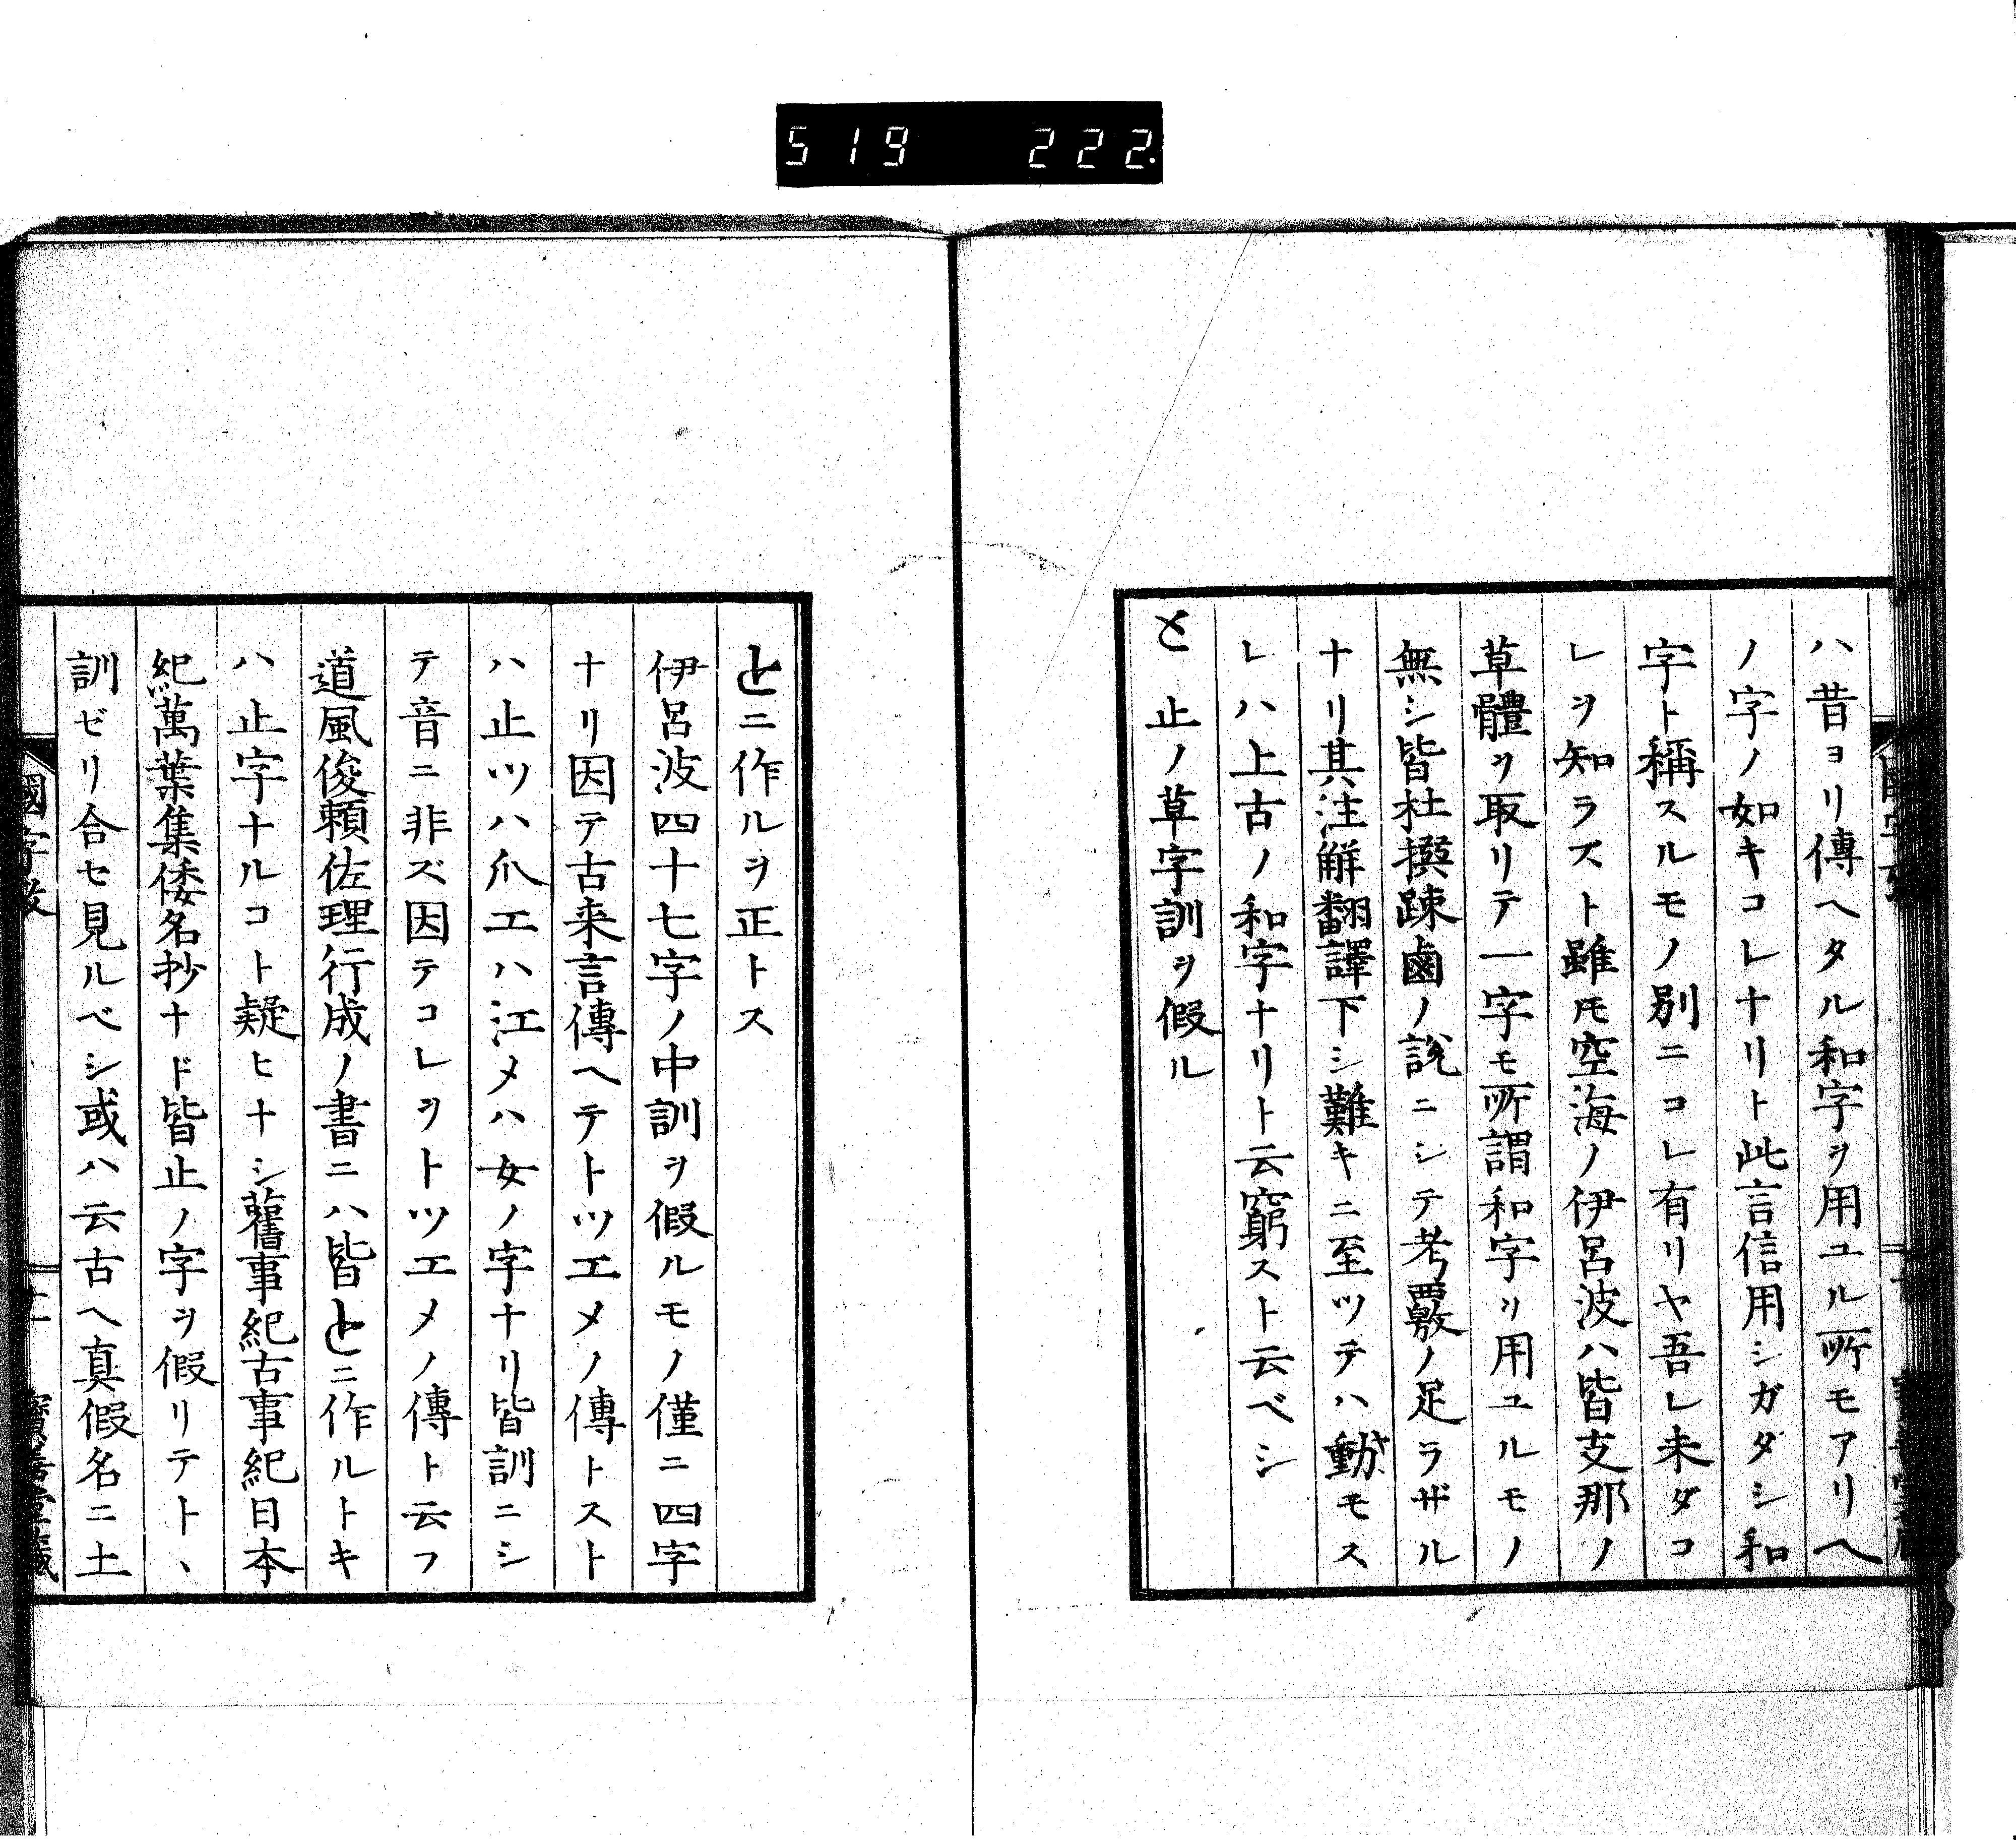 519 222.
ハ昔ヨリ傳ヘタル和字ヲ用ユル所モアリヘ
ノ字ノ如キコレナリト此言信用シガダシ和
字ト稱スルモノ別ニコレ有リヤ吾レ未ダコ
レヲ知ラスト雖𪜈空海ノ伊呂波ハ皆支那ノ
草體ヲ取リテ一字モ所謂和字ヲ用ユルモノ
無シ皆杜撰踈鹵ノ說ニシテ考覈ノ足ラザル
ナリ其注解翻譯下シ難キニ至ツテハ動モス
レハ上古ノ和字ナリト云窮スト云ベシ
と 止ノ草字訓ヲ假ル
とニ作ルヲ正トス
伊呂波四十七字ノ中訓ヲ假ルモノ僅ニ四字
ナリ因テ古来言傳ヘテトツエメノ傳トスト
ハ止ツハ爪エハ江メハ女ノ字ナリ皆訓ニシ
テ音ニ非ズ因テコレヲトツエメノ傳ト云フ
道風俊頼佐理行成ノ書ニハ皆とニ作ルトキ
ハ止字ナルコト疑ヒナシ舊事紀古事紀日本
紀萬葉集倭名抄ナド皆止ノ字ヲ假リテト、
訓ゼリ合セ見ルベシ或ハ云古ヘ真假名ニ土
國字攷